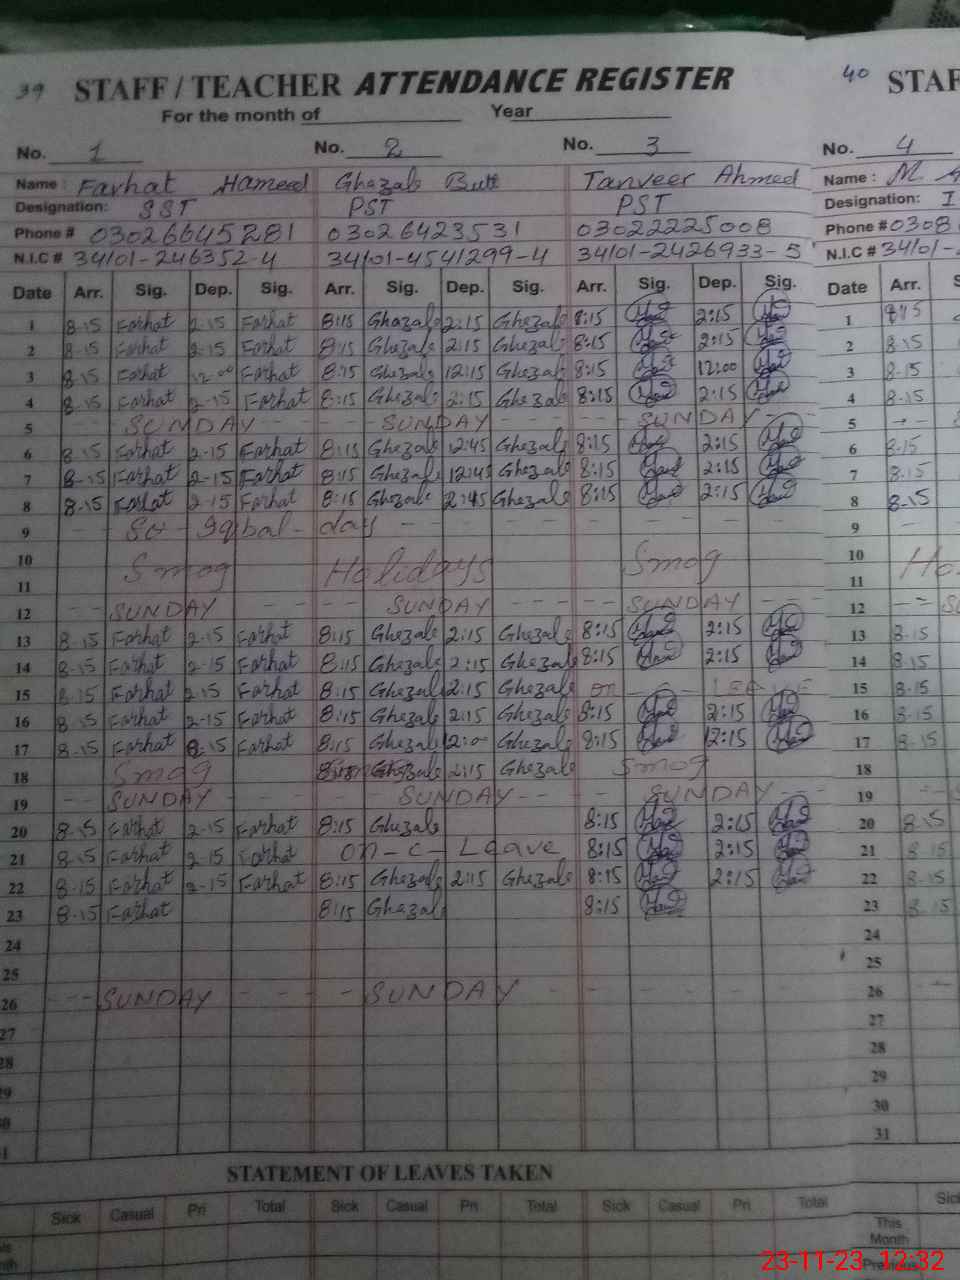 39 STAFF / TEACHER ATTENDANCE REGISTER 40 STAF
For the month of Year
No. 1 No. 2 No. 3 No. 4
Name : Farhat Hameed Ghazala Butt Tanveer Ahmed Name : M
Designation: SST PST PST Designation: I
Phone # 03026645281 03026423531 03022225008 Phone # 0308
N.I.C # 34101-246352-4 34101-4541299-4 34101-2426933-5 N.I.C # 34101-
Date Arr. Sig. Dep. Sig. Arr. Sig. Dep. Sig. Arr. Sig. Dep. Sig. Date Arr. S
1 8-15 Farhat 2-15 Farhat 8:15 Ghazala 2:15 Ghazala 8:15 2:15 1 8:15
2 8-15 Farhat 2-15 Farhat 8:15 Ghazala 2:15 Ghazala 8:15 2:15 2 8-15
3 8-15 Farhat 12-00 Farhat 8:15 Ghazala 12:15 Ghazala 8:15 12:00 3 8-15
4 8-15 Farhat 2-15 Farhat 8:15 Ghazala 2:15 Ghazala 8:15 2:15 4 8-15
5 SUNDAY SUNDAY SUNDAY 5
6 8-15 Farhat 2-15 Farhat 8:15 Ghazala 12:45 Ghazala 8:15 2:15 6 8-15
7 8-15 Farhat 2-15 Farhat 8:15 Ghazala 12:45 Ghazala 8:15 2:15 7 8-15
8 8-15 Farhat 2-15 Farhat 8:15 Ghazala 2:45 Ghazala 8:15 2:15 8 8-15
9 Iqbal - day 9
10 Smog Holidays Smog 10 Ho
11 11
12 SUNDAY SUNDAY SUNDAY 12
13 8-15 Farhat 2-15 Farhat 8:15 Ghazala 2:15 Ghazala 8:15 2:15 13 8-15
14 8-15 Farhat 2-15 Farhat 8:15 Ghazala 2:15 Ghazala 8:15 2:15 14 8-15
15 8-15 Farhat 2-15 Farhat 8:15 Ghazala 2:15 Ghazala on LEAVE 15 8-15
16 8-15 Farhat 2-15 Farhat 8:15 Ghazala 2:15 Ghazala 8:15 2:15 16 8-15
17 8-15 Farhat 8-15 Farhat 8:15 Ghazala 12:00 Ghazala 8:15 12:15 17 8-15
18 Smog 2:15 Ghazala Smog 18
19 SUNDAY SUNDAY SUNDAY 19
20 8-15 Farhat 2-15 Farhat 8:15 Ghazala 8:15 2:15 20 8-15
21 8-15 Farhat 2-15 Farhat on-c-Leave 8:15 2:15 21 8-15
22 8-15 Farhat 2-15 Farhat 8:15 Ghazala 2:15 Ghazala 8:15 2:15 22 8-15
23 8-15 Farhat 8:15 Ghazala 8:15 23 8-15
24 24
25 25
26 SUNDAY SUNDAY 26
27 27
28 28
29 29
30 30
31 31
STATEMENT OF LEAVES TAKEN
Sick Casual Pri Total Sick Casual Pri Total Sick Casual Pri Total Sick
This Month
Previous
23-11-23 12:32